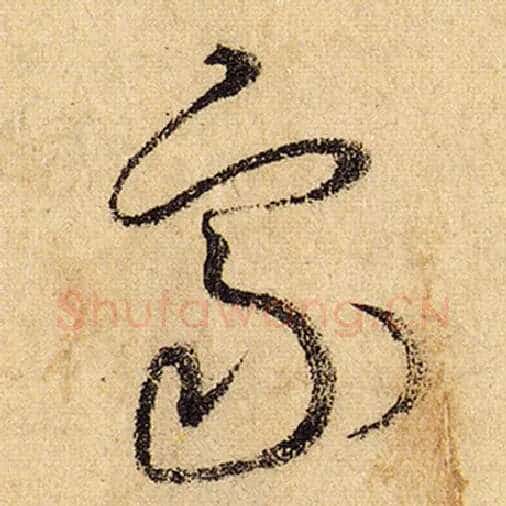 家
Shufawang.CN